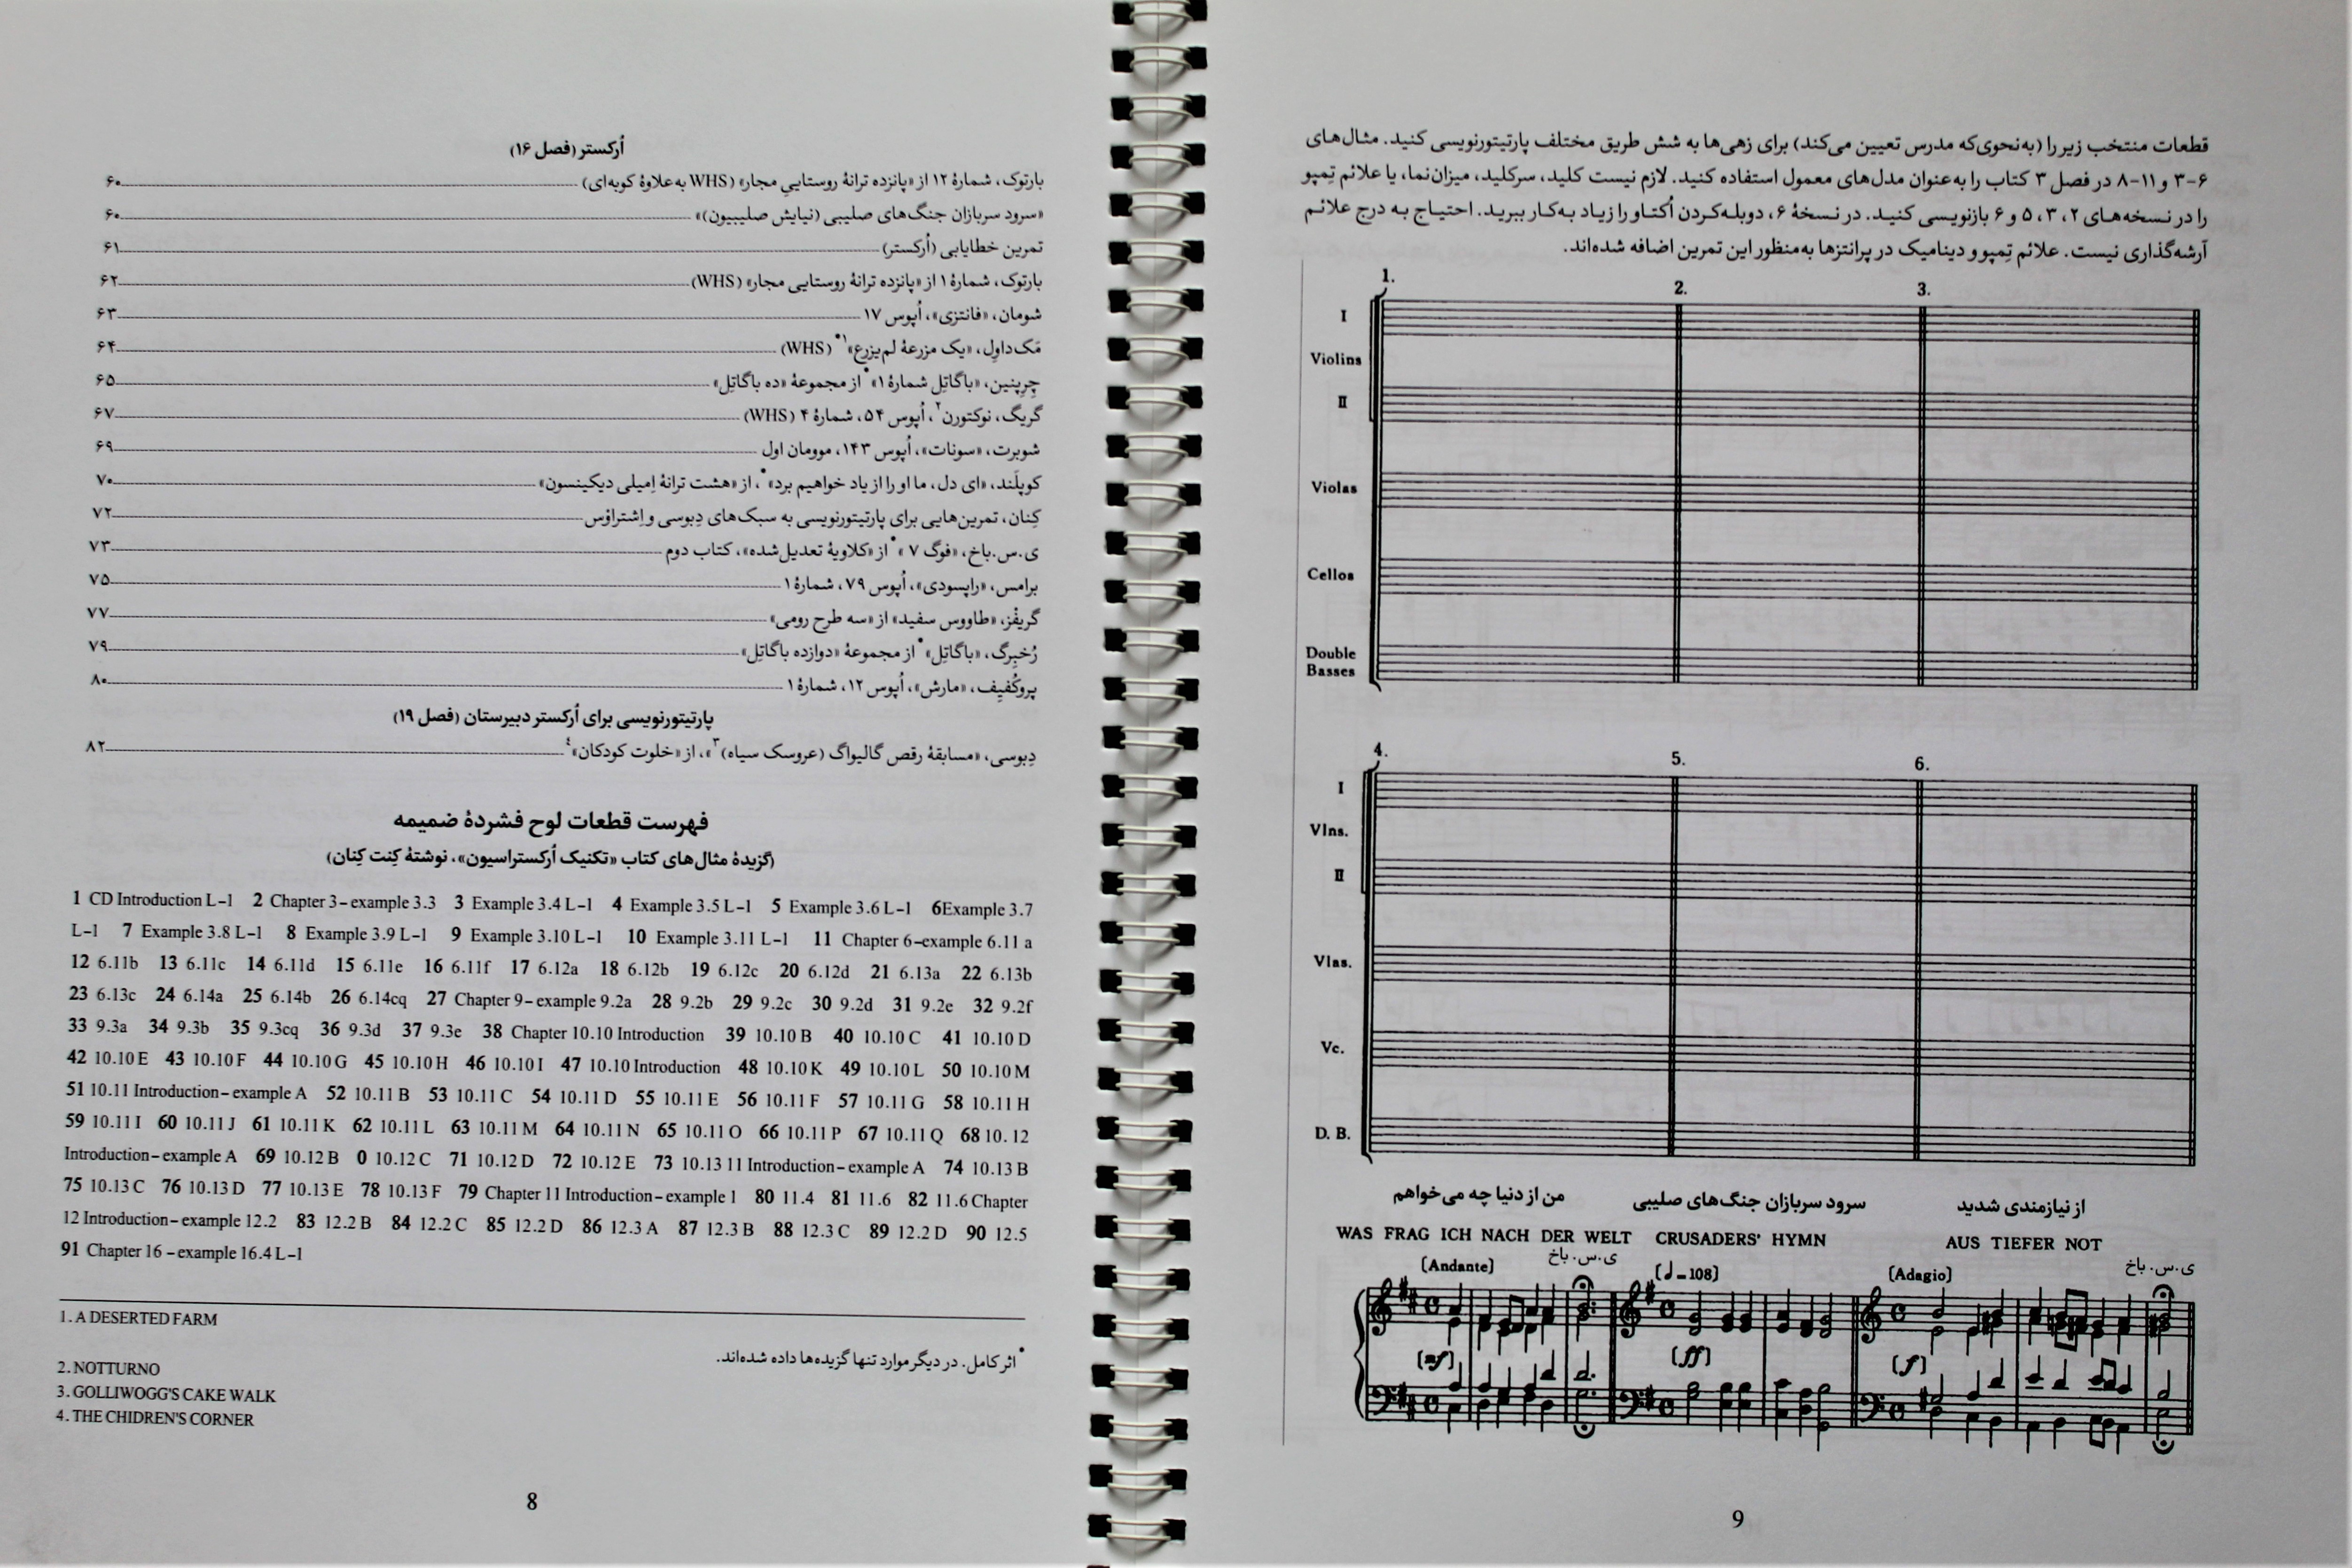 اُرکستر (فصل ۱۶)
بارتوک، شمارهٔ ۱۲ از «پانزده ترانهٔ روستاییِ مجار» (WHS به‌علاوهٔ کوبه‌ای) ۶۰
«سرود سربازان جنگ‌های صلیبی (نیایش صلیبیون)» ۶۰
تمرین خطایابی (اُرکستر) ۶۱
بارتوک، شمارهٔ ۱ از «پانزده ترانهٔ روستایی مجار» (WHS) ۶۲
شومان، «فانتزی»، اُپوس ۱۷ ۶۳
مَک‌داوِل، «یک مزرعهٔ لم‌یزرع»۱* (WHS) ۶۴
چِرِپنین، «باگاتِل شمارهٔ ۱»* از مجموعهٔ «ده باگاتِل» ۶۵
گریگ، نوکتورن۲، اُپوس ۵۴، شمارهٔ ۴ (WHS) ۶۷
شوبرت، «سونات»، اُپوس ۱۴۳، موومان اول ۶۹
کوپلَند، «ای دل، ما او را از یاد خواهیم برد»*، از «هشت ترانهٔ اِمیلی دیکینسون» ۷۰
کِنان، تمرین‌هایی برای پارتیتورنویسی به سبک‌های دِبوسی و اِشتراؤس ۷۲
ی.س.باخ، «فوگ ۷»* از «کلاویهٔ تعدیل‌شده»، کتاب دوم ۷۳
برامس، «راپسودی»، اُپوس ۷۹، شمارهٔ ۱ ۷۵
گریفْز، «طاووس سفید» از «سه طرح رومی» ۷۷
رُخبِرگ، «باگاتِل»* از مجموعهٔ «دوازده باگاتِل» ۷۹
پروکُفیِف، «مارش»، اُپوس ۱۲، شمارهٔ ۱ ۸۰
پارتیتورنویسی برای اُرکستر دبیرستان (فصل ۱۹)
دِبوسی، «مسابقهٔ رقص گالیواگ (عروسک سیاه)۳»، از «خلوت کودکان»۴ ۸۲
فهرست قطعات لوح فشردهٔ ضمیمه
(گزیدهٔ مثال‌های کتاب «تکنیک اُرکستراسیون»، نوشتهٔ کِنت کِنان)
1 CD Introduction L-1 2 Chapter 3-example 3.3 3 Example 3.4 L-1 4 Example 3.5 L-1 5 Example 3.6 L-1 6Example 3.7
L-1 7 Example 3.8 L-1 8 Example 3.9 L-1 9 Example 3.10 L-1 10 Example 3.11 L-1 11 Chapter 6-example 6.11 a
12 6.11b 13 6.11c 14 6.11d 15 6.11e 16 6.11f 17 6.12a 18 6.12b 19 6.12c 20 6.12d 21 6.13a 22 6.13b
23 6.13c 24 6.14a 25 6.14b 26 6.14cq 27 Chapter 9-example 9.2a 28 9.2b 29 9.2c 30 9.2d 31 9.2e 32 9.2f
33 9.3a 34 9.3b 35 9.3cq 36 9.3d 37 9.3e 38 Chapter 10.10 Introduction 39 10.10 B 40 10.10 C 41 10.10 D
42 10.10 E 43 10.10 F 44 10.10 G 45 10.10 H 46 10.10 I 47 10.10 Introduction 48 10.10 K 49 10.10 L 50 10.10 M
51 10.11 Introduction-example A 52 10.11 B 53 10.11 C 54 10.11 D 55 10.11 E 56 10.11 F 57 10.11 G 58 10.11 H
59 10.11 I 60 10.11 J 61 10.11 K 62 10.11 L 63 10.11 M 64 10.11 N 65 10.11 O 66 10.11 P 67 10.11 Q 68 10. 12
Introduction-example A 69 10.12 B 0 10.12 C 71 10.12 D 72 10.12 E 73 10.13 11 Introduction-example A 74 10.13 B
75 10.13 C 76 10.13 D 77 10.13 E 78 10.13 F 79 Chapter 11 Introduction-example 1 80 11.4 81 11.6 82 11.6 Chapter
12 Introduction-example 12.2 83 12.2 B 84 12.2 C 85 12.2 D 86 12.3 A 87 12.3 B 88 12.3 C 89 12.2 D 90 12.5
91 Chapter 16 -example 16.4 L-1
1. A DESERTED FARM
* اثر کامل. در دیگر موارد تنها گزیده‌ها داده شده‌اند.
2. NOTTURNO
3. GOLLIWOGG'S CAKE WALK
4. THE CHIDREN'S CORNER
8
قطعات منتخب زیر را (به‌نحوی‌که مدرس تعیین می‌کند) برای زهی‌ها به شش طریق مختلف پارتیتورنویسی کنید. مثال‌های
۳-۶ و ۱۱-۸ در فصل ۳ کتاب را به‌عنوان مدل‌های معمول استفاده کنید. لازم نیست کلید، سرکلید، میزان‌نما، یا علائم تِمپو
را در نسخه‌های ۲، ۳، ۵ و ۶ بازنویسی کنید. در نسخهٔ ۶، دوبله‌کردن اُکتاو را زیاد به‌کار ببرید. احتیاج به درج علائم
آرشه‌گذاری نیست. علائم تِمپو و دینامیک در پرانتزها به‌منظور این تمرین اضافه شده‌اند.
1. 2. 3.
I
Violins
II
Violas
Cellos
Double
Basses
4. 5. 6.
I
Vlns.
II
Vlas.
Vc.
D. B.
من از دنیا چه می‌خواهم
WAS FRAG ICH NACH DER WELT
ی.س. باخ
(Andante)
(mf)
سرود سربازان جنگ‌های صلیبی
CRUSADERS' HYMN
(♩=108)
(ff)
از نیازمندی شدید
AUS TIEFER NOT
ی.س. باخ
(Adagio)
(f)
9